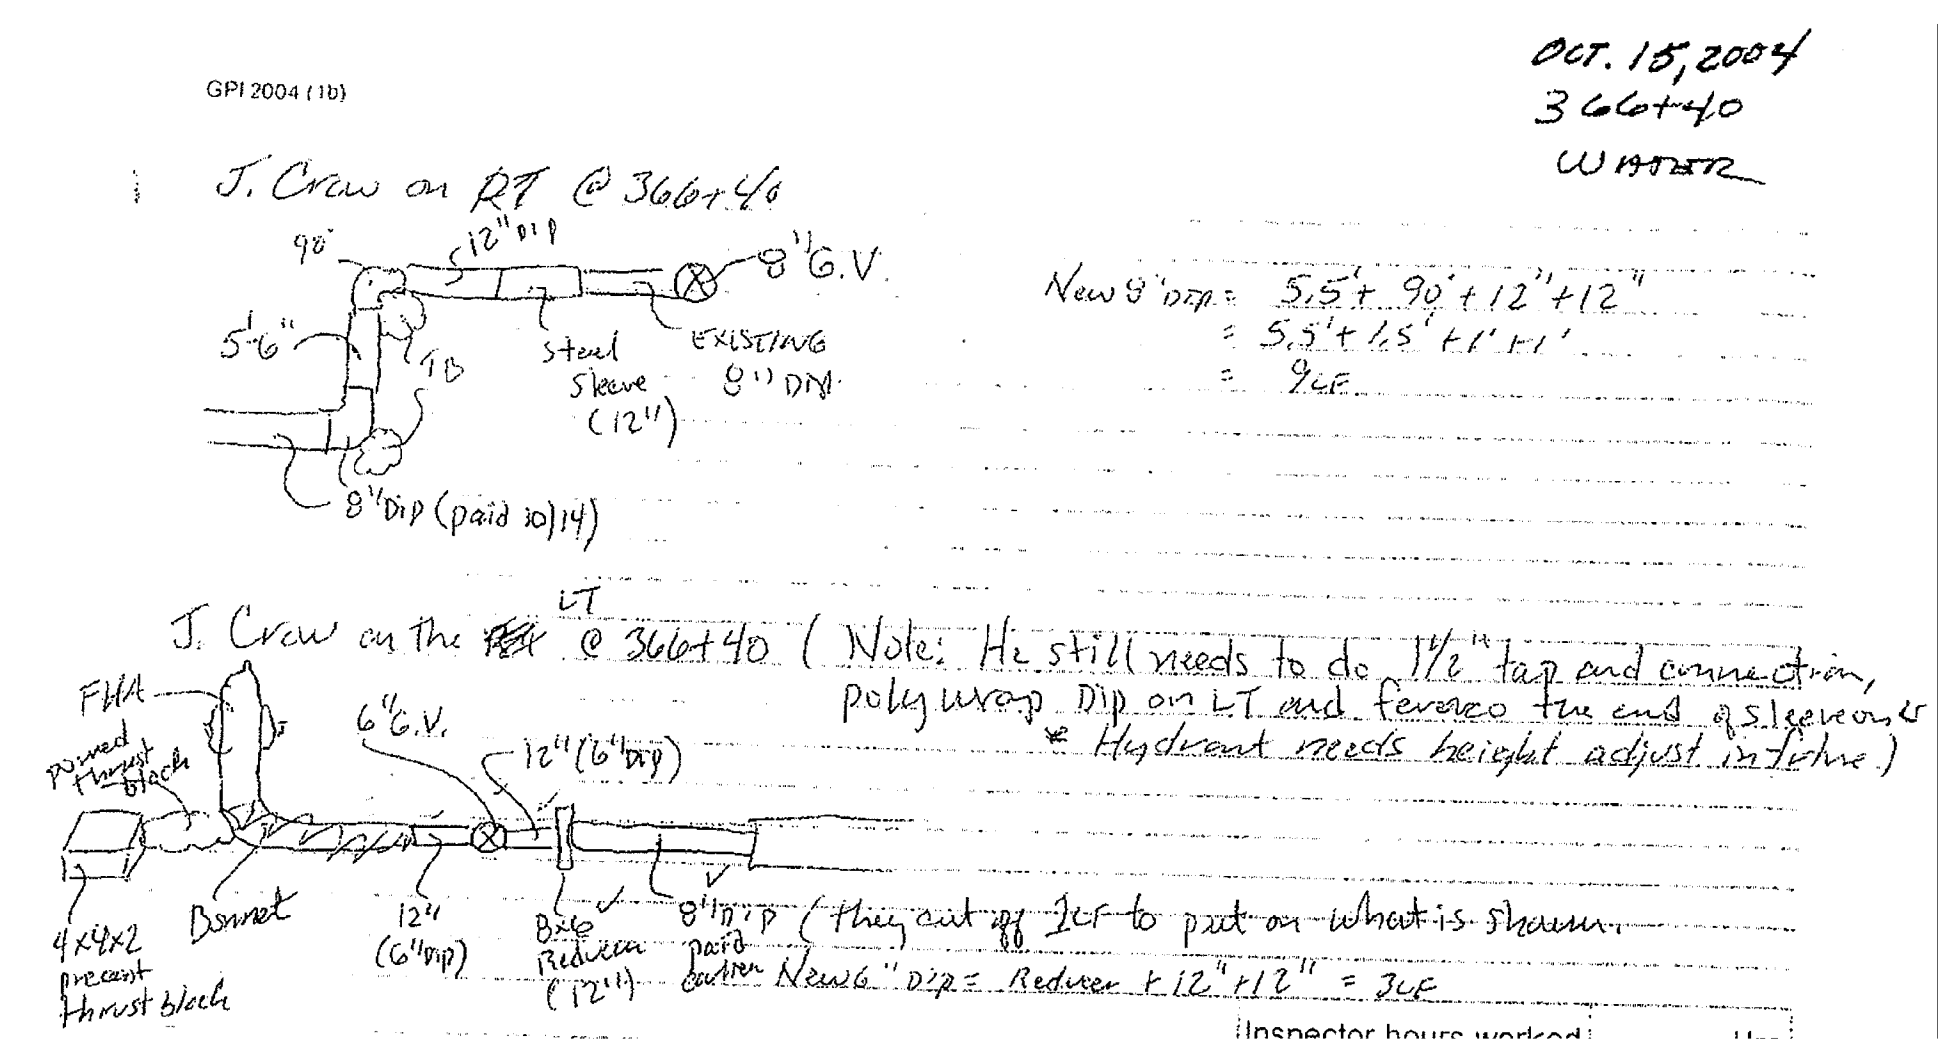 OCT. 15, 2004
366+40
WATER
GPI 2004 (1b)
J. Crew on RT @ 366+40
90°
12" DIP
8" G.V.
5'-6"
TB
Steel
Sleeve
(12")
EXISTING
8" DIP
8" Dip (paid 10/14)
New 8" DIP = 5.5' + 90° + 12" + 12"
= 5.5' + 1.5' + 1' + 1'
= 9LF
LT
J. Crew on the @ 366+40 ( Note: He still needs to do 1 1/2" tap and connection,
polywrap Dip on LT and the end of sleeve on LT
* Hydrant needs height adjust in future.)
FHA
poured
thrust
block
6" G.V.
12" (6" Dip)
4x4x2
precast
thrust block
Bonnet
12"
(6" Dip)
8x6
Reducer
(12")
8" Dip (they cut off 1LF to put on what is shown.
paid
earlier
New 6" DIP = Reducer + 12" + 12" = 3LF
Inspector hours worked
Hrs